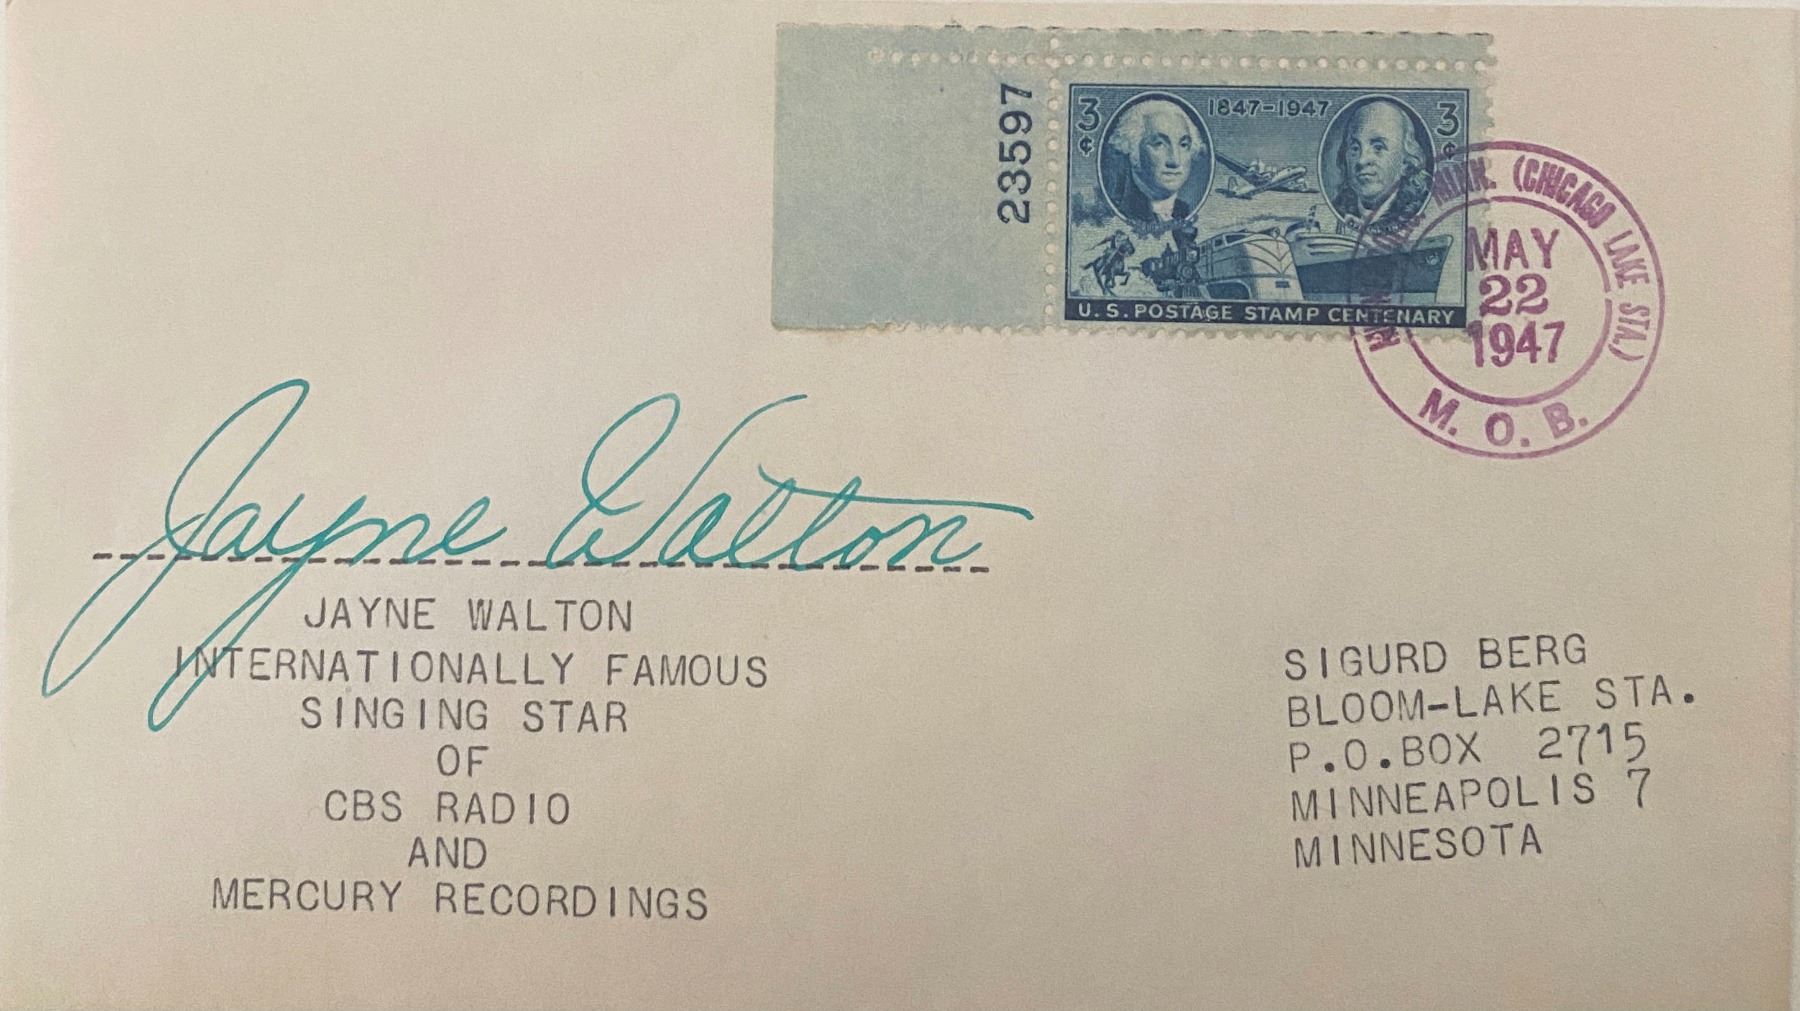 23597
3¢ 1847-1947 3¢
U.S. POSTAGE STAMP CENTENARY
MINN. (CHICAGO LAKE STA.)
MAY
22
1947
M. O. B.
Jayne Walton
JAYNE WALTON
INTERNATIONALLY FAMOUS
SINGING STAR
OF
CBS RADIO
AND
MERCURY RECORDINGS
SIGURD BERG
BLOOM-LAKE STA.
P.O.BOX 2715
MINNEAPOLIS 7
MINNESOTA